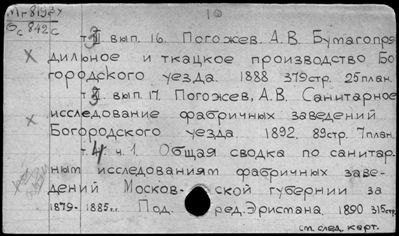 10
т. 3 вып. 16. Погожев. А.В. Бумагопря
дильное и ткацкое производство Бо
городского уезда. 1888 379стр. 25план.
т. 3 вып. 17. Погожев, А.В. Санитарное
исследование фабричных заведений
Богородского уезда 1892. 89стр. 7план.
т. 4 ч. 1. Общая сводка по санитар-
ным исследованиям фабричных заве-
дений Москов- ской губернии за
1879-1885гг. Под. ред. Эристана. 1890 315стр.
см. след. карт.